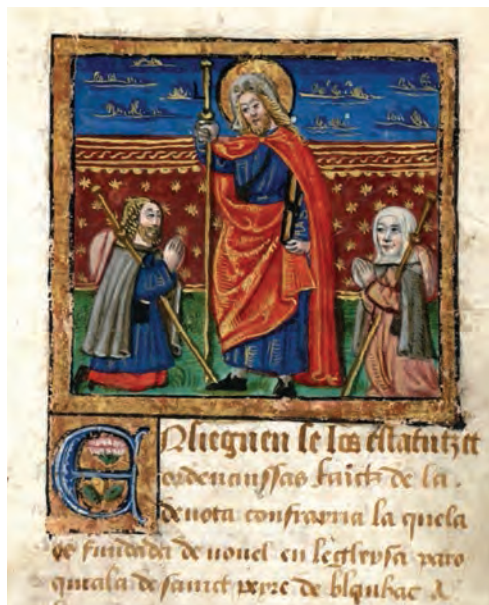 ENsieguen se los estatutz et
ordenanssas faictz de la .
deuota confrayria la quela
es fundada de nouel en legleysa paro
quiala de sainct peyre de blanhac